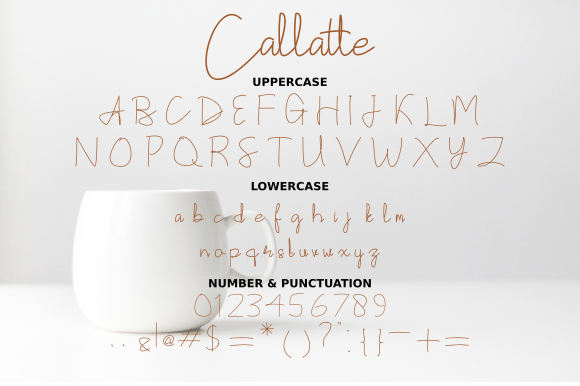 Callatte
UPPERCASE
A B C D E F G H I J K L M
N O P Q R S T U V W X Y Z
LOWERCASE
a b c d e f g h i j k l m
n o p q r s t u v w x y z
NUMBER & PUNCTUATION
0 1 2 3 4 5 6 7 8 9
. . & ! @ # $ = * ( ) ? " : { } — + =